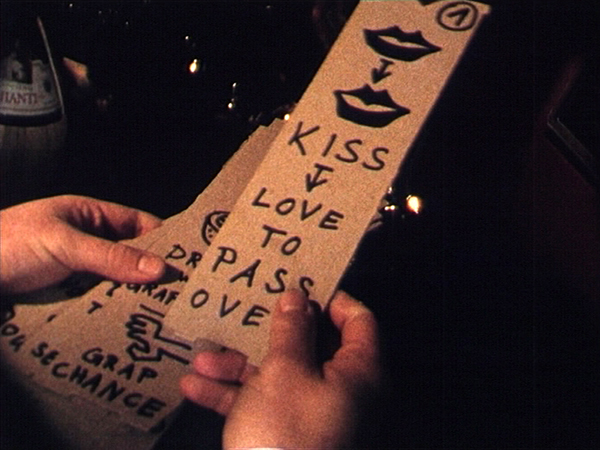 1
KISS
LOVE
TO
PASS
OVE
DR
GRAP
SECHANCE
IANTI